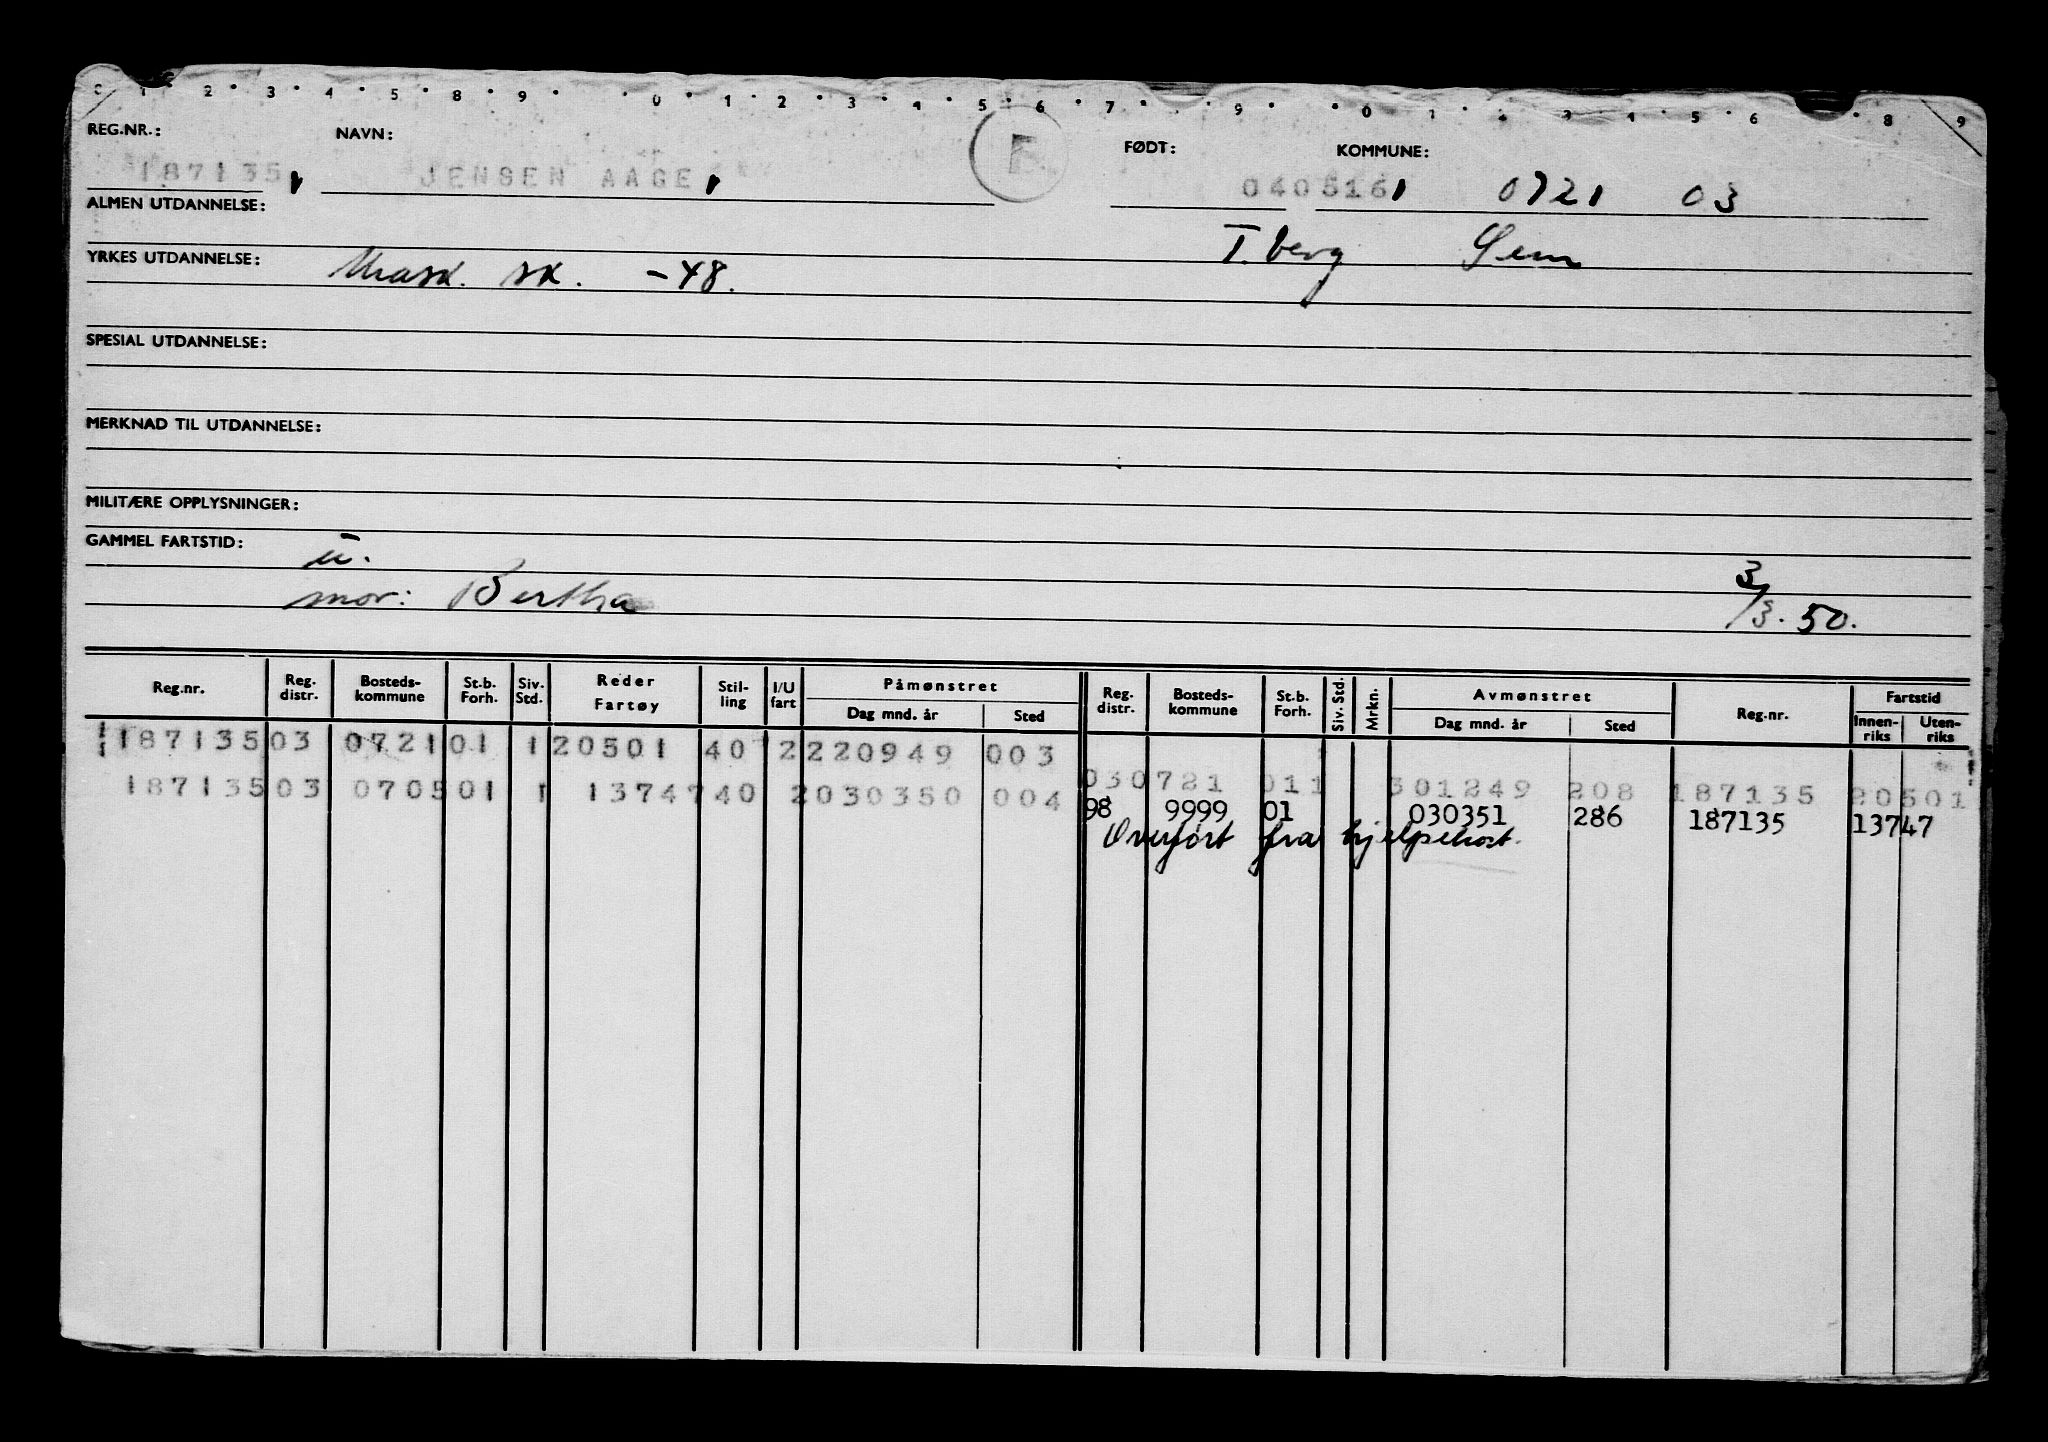 REG.NR.: NAVN: F FØDT: KOMMUNE:
187135 JENSEN AAGE 040516 0721 03
ALMEN UTDANNELSE:
T.berg Sem
YRKES UTDANNELSE: Mask. sk. -48.
SPESIAL UTDANNELSE:
MERKNAD TIL UTDANNELSE:
MILITÆRE OPPLYSNINGER:
GAMMEL FARTSTID: u.
mor: Bertha 3/3.50.
Reg.nr. Reg. distr. Bosteds-kommune St.b. Forh. Siv. Std. Reder Fartøy Stil-ling I/U fart Påmønstret Dag mnd. år Sted Reg. distr. Bosteds-kommune St.b. Forh. Siv. Std. Mrkn. Avmønstret Dag mnd. år Sted Reg.nr. Fartstid Innen-riks Uten-riks
187135 03 0721 01 1 20501 40 2 220949 003
030721 011 301249 208 187135 20501
187135 03 0705 01 1 13747 40 2 030350 004
98 9999 01 030351 286 187135 13747
Overført fra hjelpekort.